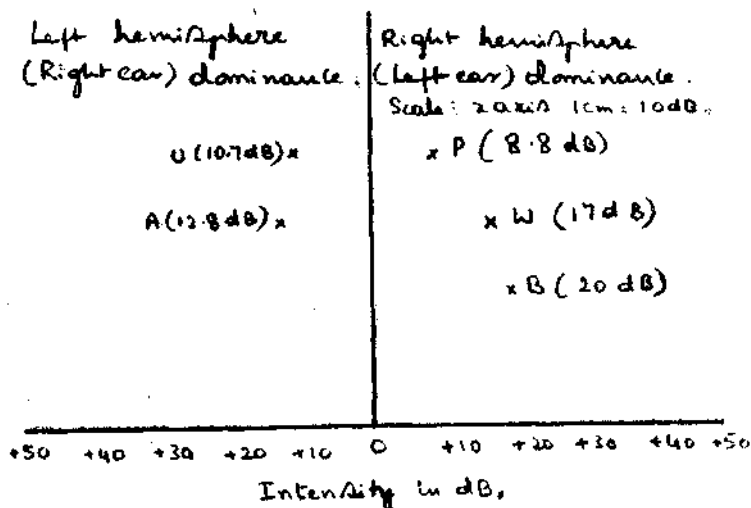 Left hemisphere
(Right ear) dominance.
Right hemisphere
(Left ear) dominance.
Scale: x axis 1cm = 10dB.
U (10.7dB) x
x P ( 8.8 dB)
A (12.8 dB) x
x W (17 dB)
x B ( 20 dB)
+50 +40 +30 +20 +10 0 +10 +20 +30 +40 +50
Intensity in dB.